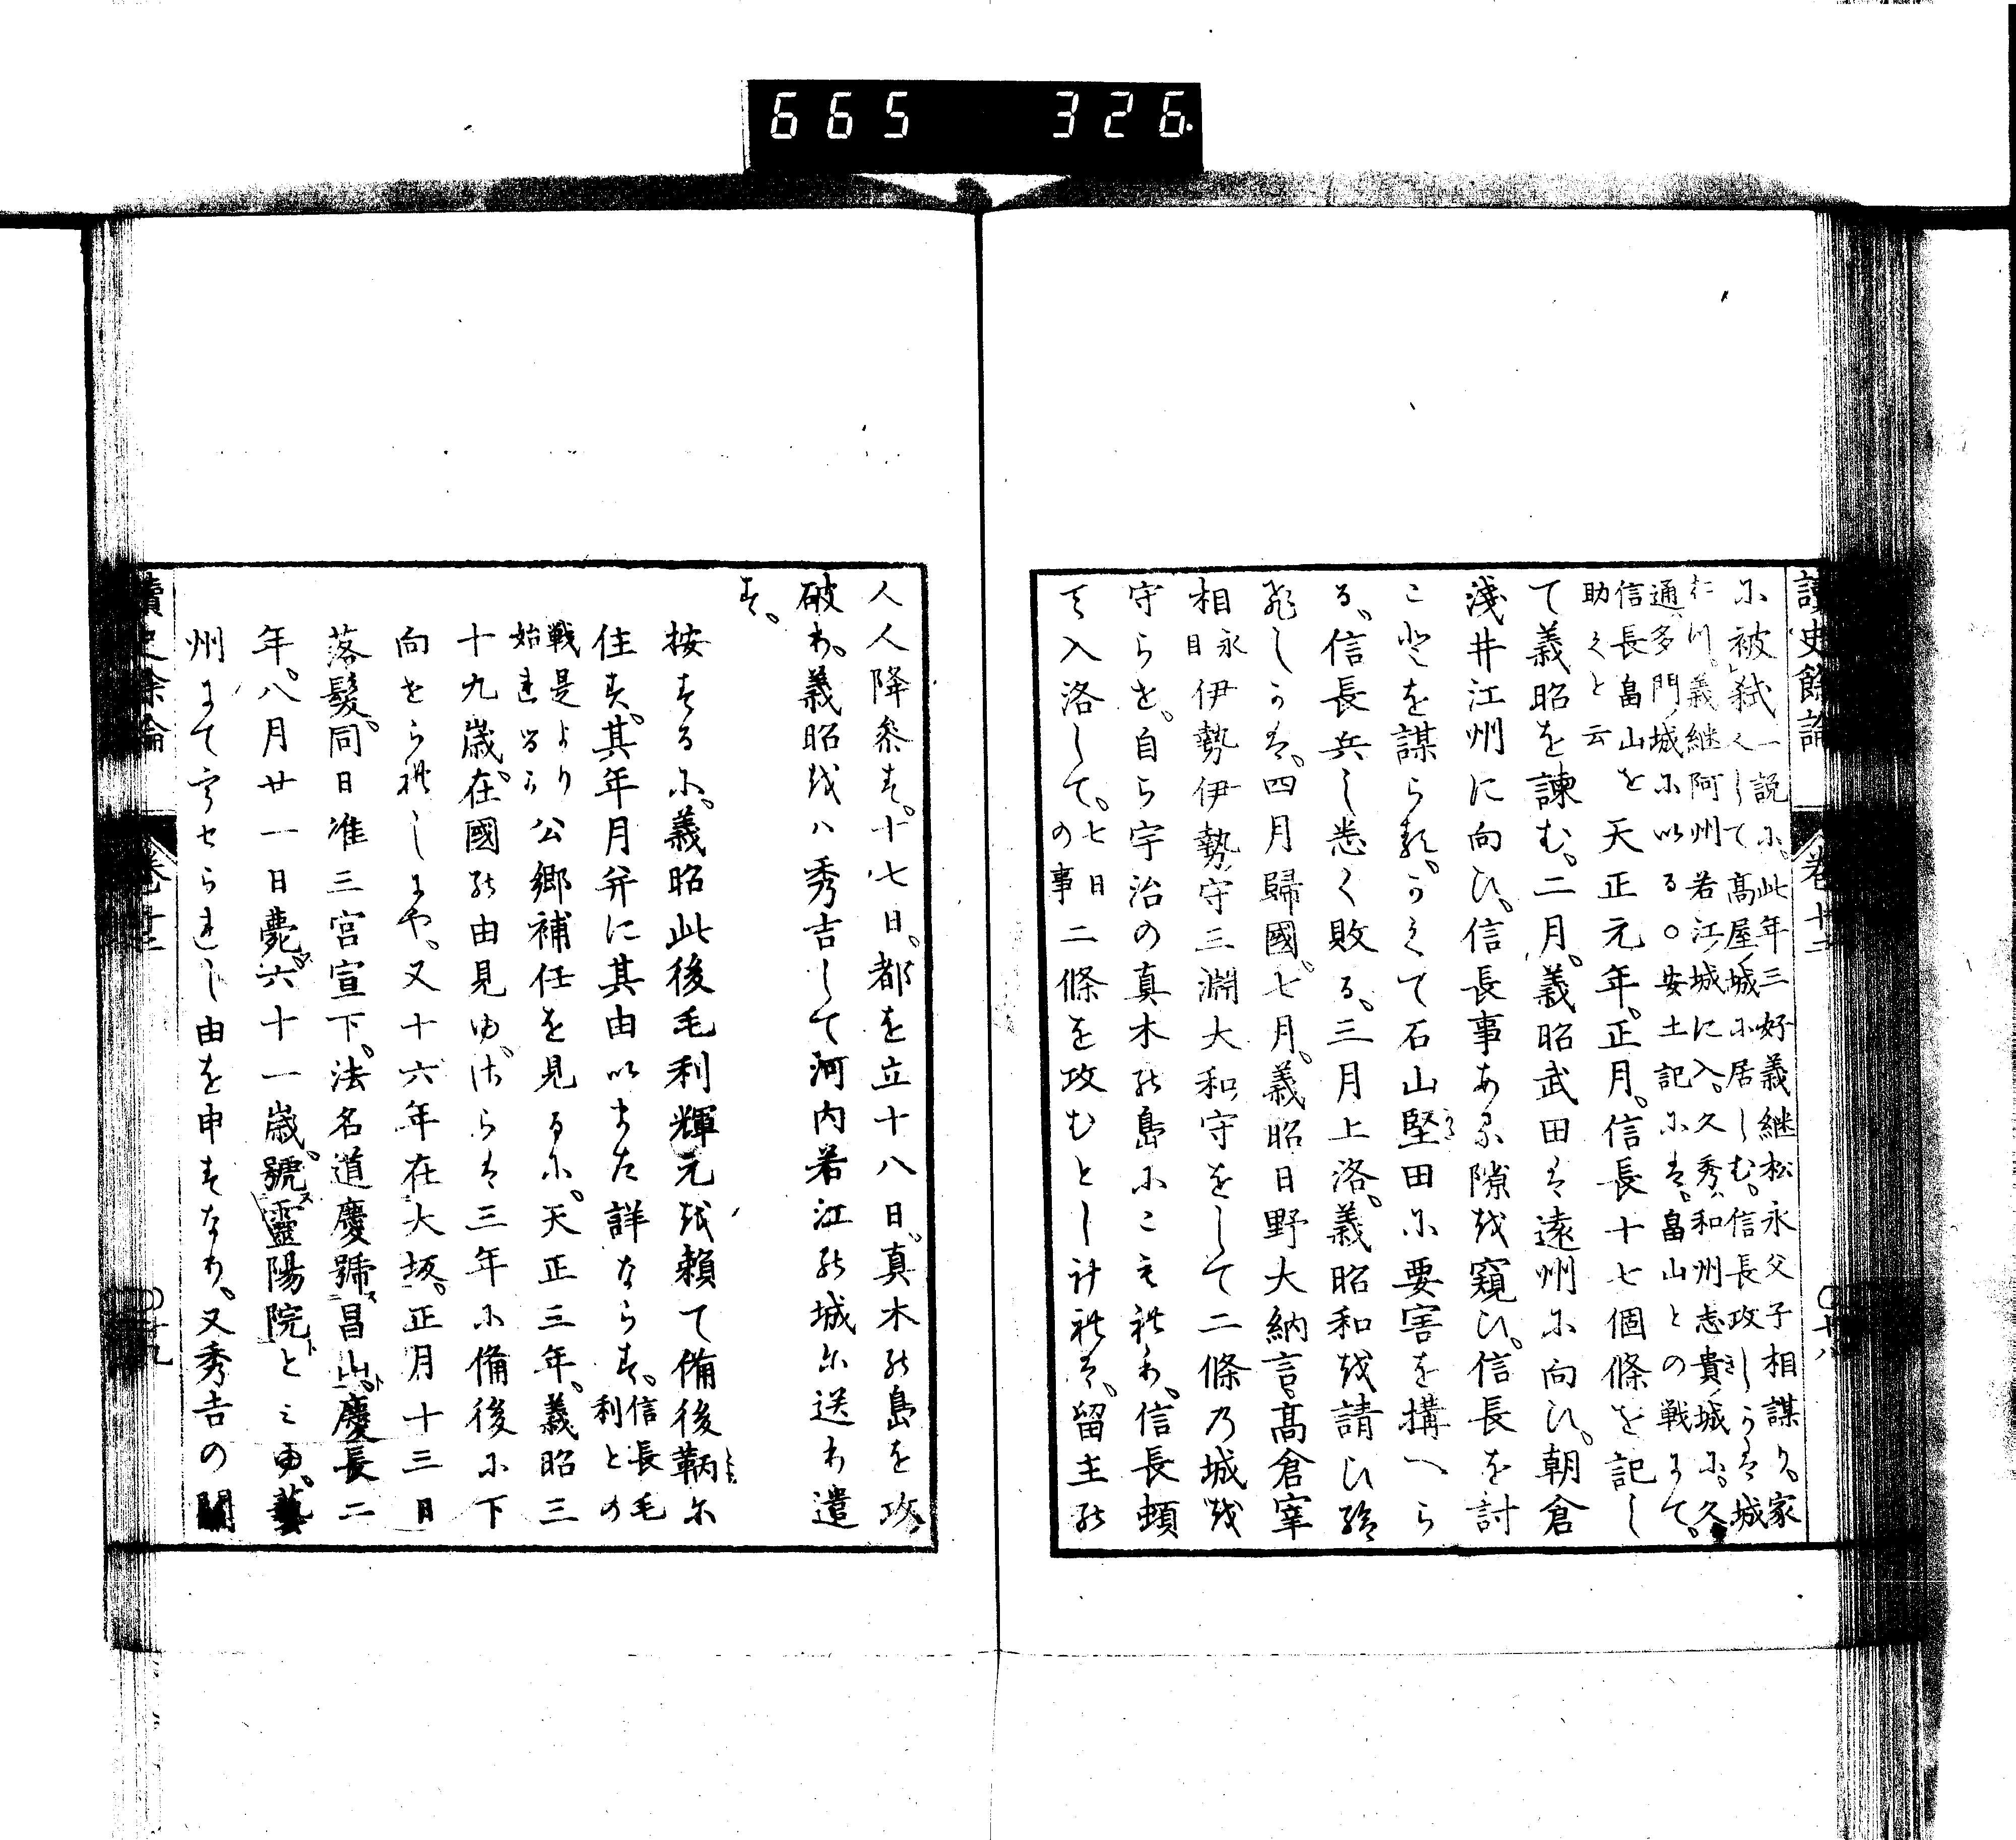 665 326
讀史餘論 卷十二 〇十八
に被弑くして高屋ノ城に居しむ。信長攻しかは城
一説に。此年三好義継松永父子相謀り。家
仁川。義継阿州若江ノ城に入。久秀ハ和州志貴ノ城に。久
通ハ多門ノ城に以る〇安土記には。畠山との戦にて。
信長畠山を
助くと云
天正元年。正月。信長十七個條を記し
て義昭を諫む。二月。義昭武田は遠州に向ひ。朝倉
淺井江州に向ひ。信長事ある隙を窺ひ。信長を討
ことを謀らる。かくて石山堅田に要害を搆へら
る。信長兵し悉く敗る。三月上洛。義昭和を請ひ給
ひしかは。四月歸國。七月。義昭日野大納言。高倉宰
相永
目伊勢伊勢守三淵大和守をして二條乃城を
守らせ。自ら宇治の真木の島にこもれり。信長頓
て入洛して。七日
の事二條を攻むとし計れは。留主の
人人降参す。十七日。都を立十八日。真木の島を攻
破り。義昭をハ秀吉して河内若江の城に送り遣
す。
按するに。義昭此後毛利輝元を頼て備後鞆に
住す。其年月并に其由いまた詳ならす。信長毛
利との
戦是より
始れるか公卿補任を見るに。天正三年。義昭三
十九歳。在國の由見ゆ。さらは三年に備後に下
向せられしにや。又十六年在大坂。正月十三日
落髪。同日准三宮宣下。法名道慶號ス昌山ト。慶長二
年。八月廿一日薨。六十一歳。號ス靈陽院トと云。藝
州にて害せられし由を申すなり。又秀吉の關
讀史餘論 卷十二 〇十九